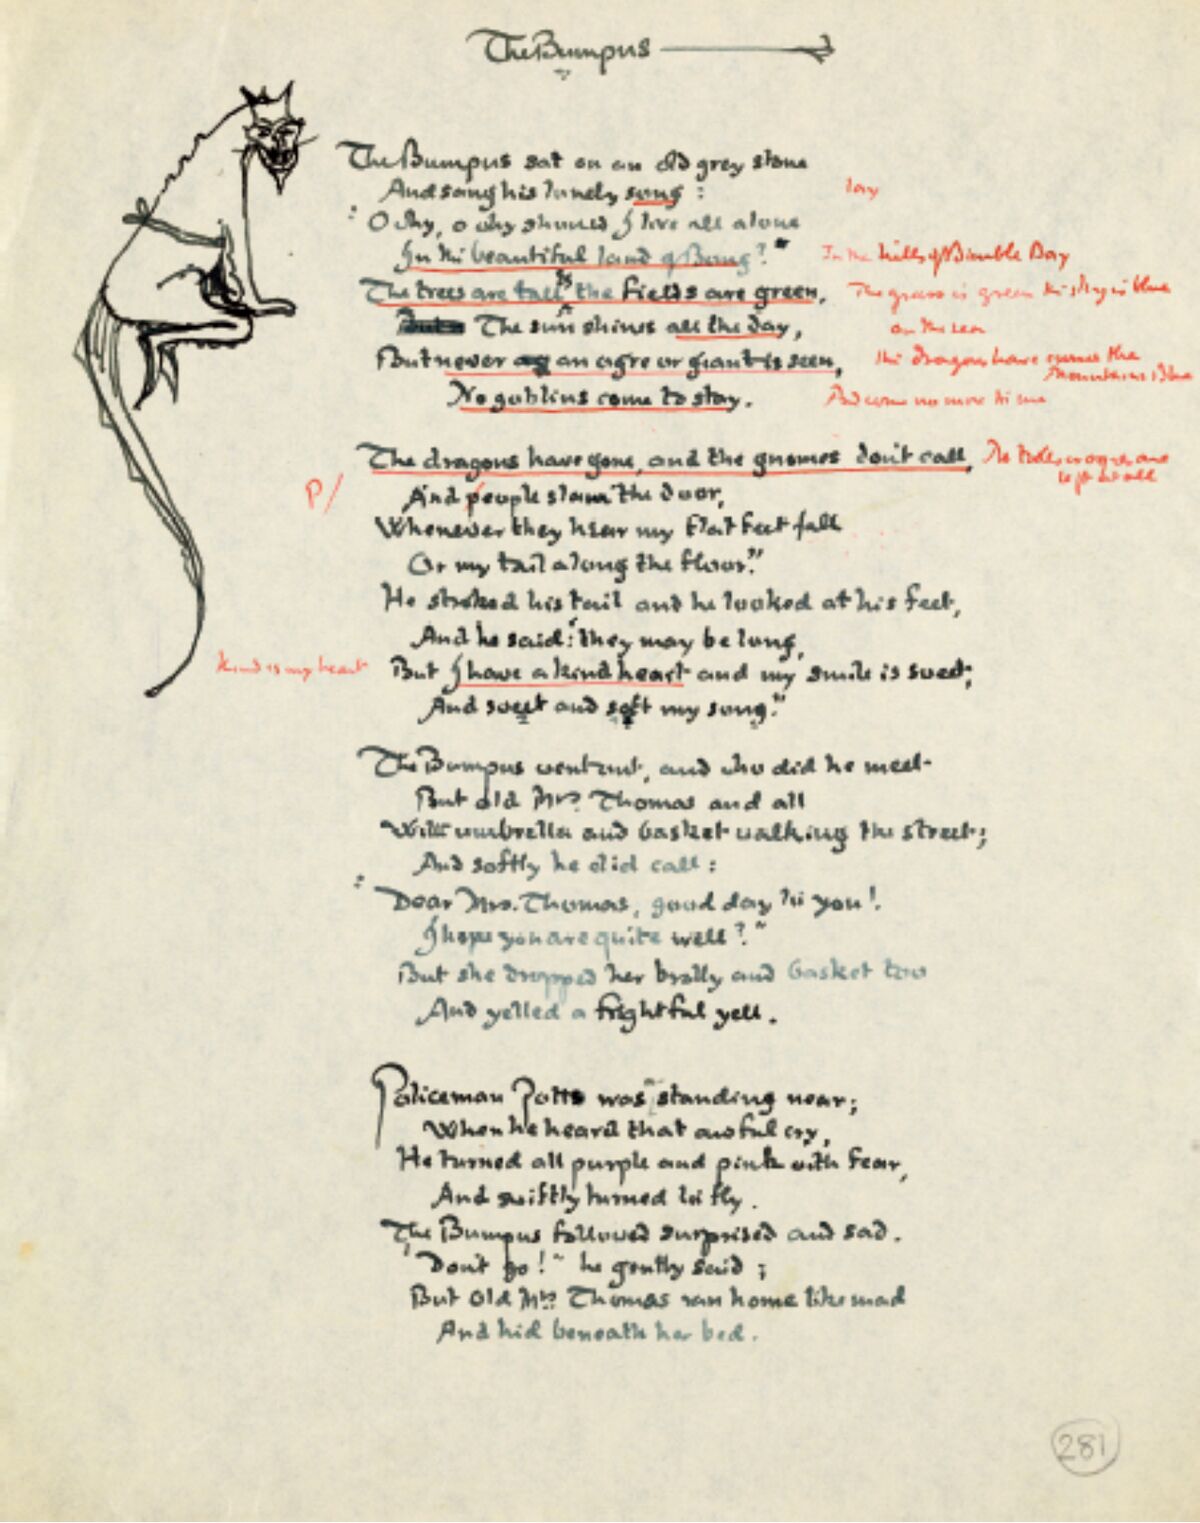 The Bumpus
The Bumpus sat on an old grey stone
And sang his lonely song : lay
"O why, o why should I live all alone
In the beautiful land of Bong?" In the hills of Bimble Bay
The trees are tall, the fields are green, The grass is green the sky is blue
The sun shines all the day, on the sea
But never an ogre or giant is seen, the dragons have the Mountains blue
No goblins come to stay. And come no more to me
The dragons have gone, and the gnomes don't call, No trolls or ogres are left at all
P/ And people slam the door,
Whenever they hear my flat feet fall
Or my tail along the floor."
He stroked his tail and he looked at his feet,
And he said: "they may be long,
kind is my heart But I have a kind heart and my smile is sweet,
And sweet and soft my song."
The Bumpus went out, and who did he meet
But old Mrs. Thomas and all
With umbrella and basket walking the street;
And softly he did call :
"Dear Mrs. Thomas, good day to you!
I hope you are quite well?"
But she dropped her brolly and basket too
And yelled a frightful yell.
Policeman Potts was standing near;
When he heard that awful cry,
He turned all purple and pink with fear,
And swiftly turned to fly.
The Bumpus followed surprised and sad.
"Don't go!" he gently said ;
But old Mrs. Thomas ran home like mad
And hid beneath her bed.
281